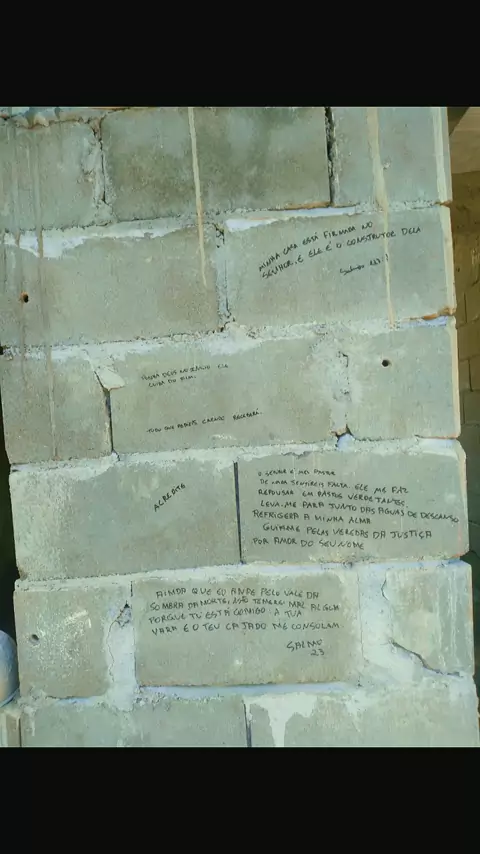 MINHA CASA ESTÁ FIRMADA NO
SENHOR, E ELE É O CONSTRUTOR DELA
Salmo
DEUS
CUIDA DE MIM.
TUDO QUE CRENDO RECEBERÁ.
ACREDITE
O SENHOR É MEU PASTOR
DE NADA SENTIREI FALTA. ELE ME FAZ
REPOUSAR EM PASTOS VERDEJANTES
LEVA-ME PARA JUNTO DAS AGUAS DE DESCANSO
REFRIGERA A MINHA ALMA
GUIA-ME PELAS VEREDAS DA JUSTIÇA
POR AMOR DO SEU NOME
AINDA QUE EU ANDE PELO VALE DA
SOMBRA DA MORTE, NÃO TEMEREI MAL ALGUM
PORQUE TU ESTÁ COMIGO A TUA
VARA E O TEU CAJADO ME CONSOLAM
SALMO
23